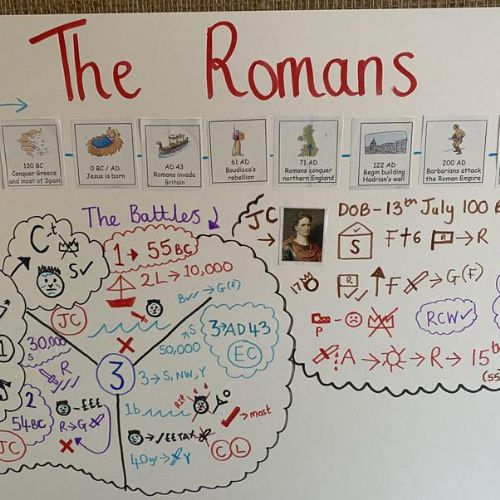 The Romans
130 BC
Conquer Greece
and most of Spain
0 BC / AD
Jesus is born
AD 43
Romans invade
Britain
61 AD
Boudicca's
rebellion
71 AD
Romans conquer
northern England
122 AD
Begin building
Hadrian's wall
200 AD
Barbarians attack
the Roman Empire
The Battles
Ct
S
1 → 55 BC
2L → 10,000
JC
B → G(F)
30,000
S
R
2
54 BC
JC
EEE
R → G
3
S
50,000
3 → AD 43
EC
3 → S, NW, Y
1b
RIP
→ most
EE TAX
CL
40yr → Y
1
JC
→
DOB - 13th July 100 B
S F + 6 R → R
17 R ↑ F → G(F)
P RCW
A → R → 15th
(55